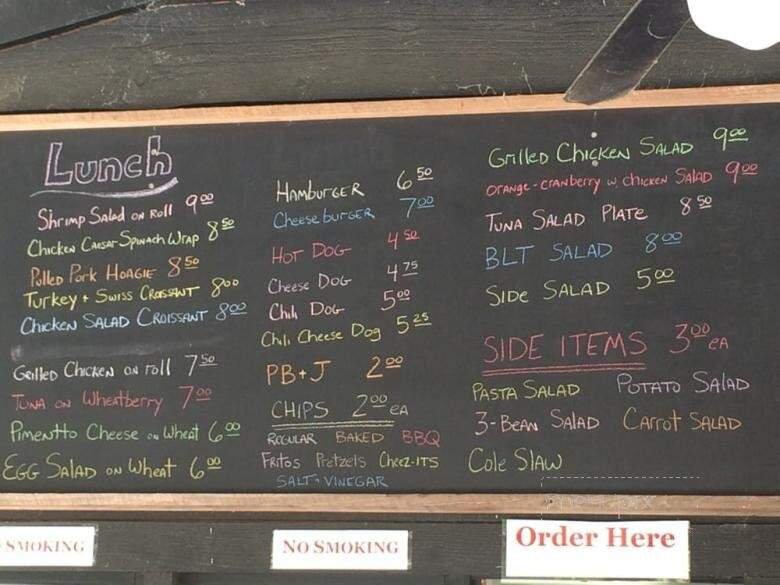 Lunch
Shrimp Salad on Roll 9.00
Chicken Caesar Spinach Wrap 8.50
Pulled Pork Hoagie 8.50
Turkey + Swiss Croissant 8.00
Chicken Salad Croissant 8.00
Grilled Chicken on roll 7.50
Tuna on Wheatberry 7.00
Pimentto Cheese on Wheat 6.00
Egg Salad on Wheat 6.00
Hamburger 6.50
Cheeseburger 7.00
Hot Dog 4.50
Cheese Dog 4.75
Chili Dog 5.00
Chili Cheese Dog 5.25
PB+J 2.00
CHIPS 2.00 EA
Regular Baked BBQ
Fritos Pretzels Cheez-its
Salt + Vinegar
Grilled Chicken Salad 9.00
Orange-cranberry w. chicken Salad 9.00
Tuna Salad Plate 8.50
BLT Salad 8.00
Side Salad 5.00
SIDE ITEMS 3.00 EA
Pasta Salad Potato Salad
3-Bean Salad Carrot Salad
Cole Slaw
SMOKING
NO SMOKING
Order Here